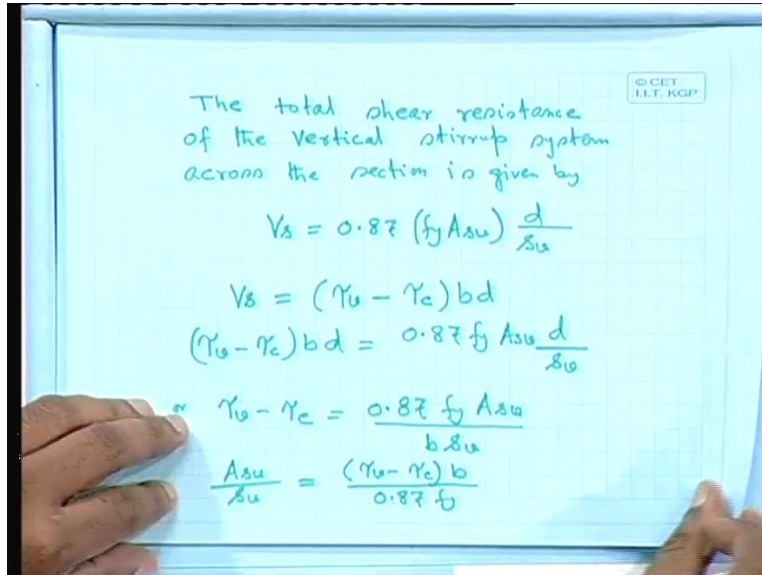 © CET
I.I.T. KGP
The total shear resistance
of the vertical stirrup system
across the section is given by
Vs = 0.87 (fy Asv) d/sv
Vs = (τv - τc) bd
(τv - τc) bd = 0.87 fy Asv d/sv
or τv - τc = 0.87 fy Asv / b sv
Asv/sv = (τv - τc) b / 0.87 fy